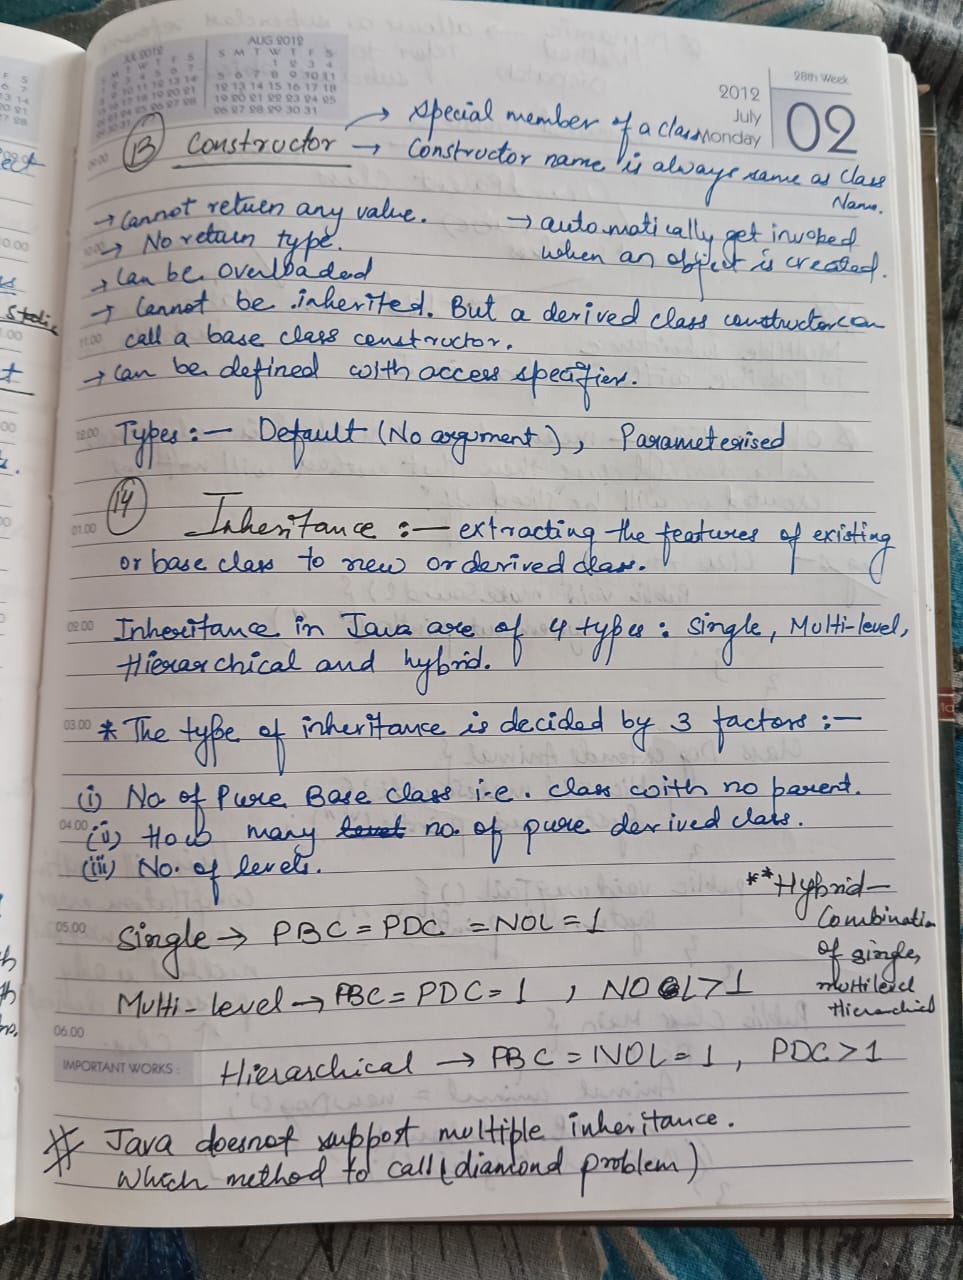 JUL 2012
AUG 2012
S M T W T F S
1 2 3 4
5 6 7 8 9 10 11
12 13 14 15 16 17 18
19 20 21 22 23 24 25
26 27 28 29 30 31
28th Week
2012
July
Monday
02
(13) Constructor → Special member of a class
→ Constructor name is always same as Class
Name.
→ Cannot return any value.
→ automatically get invoked
when an object is created.
→ No return type.
→ Can be overloaded
→ Cannot be inherited. But a derived class constructor can
11.00 call a base class constructor.
→ Can be defined with access specifier.
12.00 Types :- Default (No argument), Parameterised
(14)
01.00 Inheritance :- extracting the features of existing
or base class to new or derived class.
02.00 Inheritance in Java are of 4 types: Single, Multi-level,
Hierarchical and hybrid.
03.00 * The type of inheritance is decided by 3 factors :-
(i) No of Pure Base class i.e. class with no parent.
04.00 (ii) How many level no. of pure derived class.
(iii) No. of levels.
** Hybrid -
Combination
of single,
multilevel
Hierarchical
05.00 Single → PBC = PDC = NOL = 1
Multi-level → PBC = PDC = 1 , NOL > 1
06.00
IMPORTANT WORKS :
Hierarchical → PBC = NOL = 1, PDC > 1
# Java doesnot support multiple inheritance.
Which method to call (diamond problem)